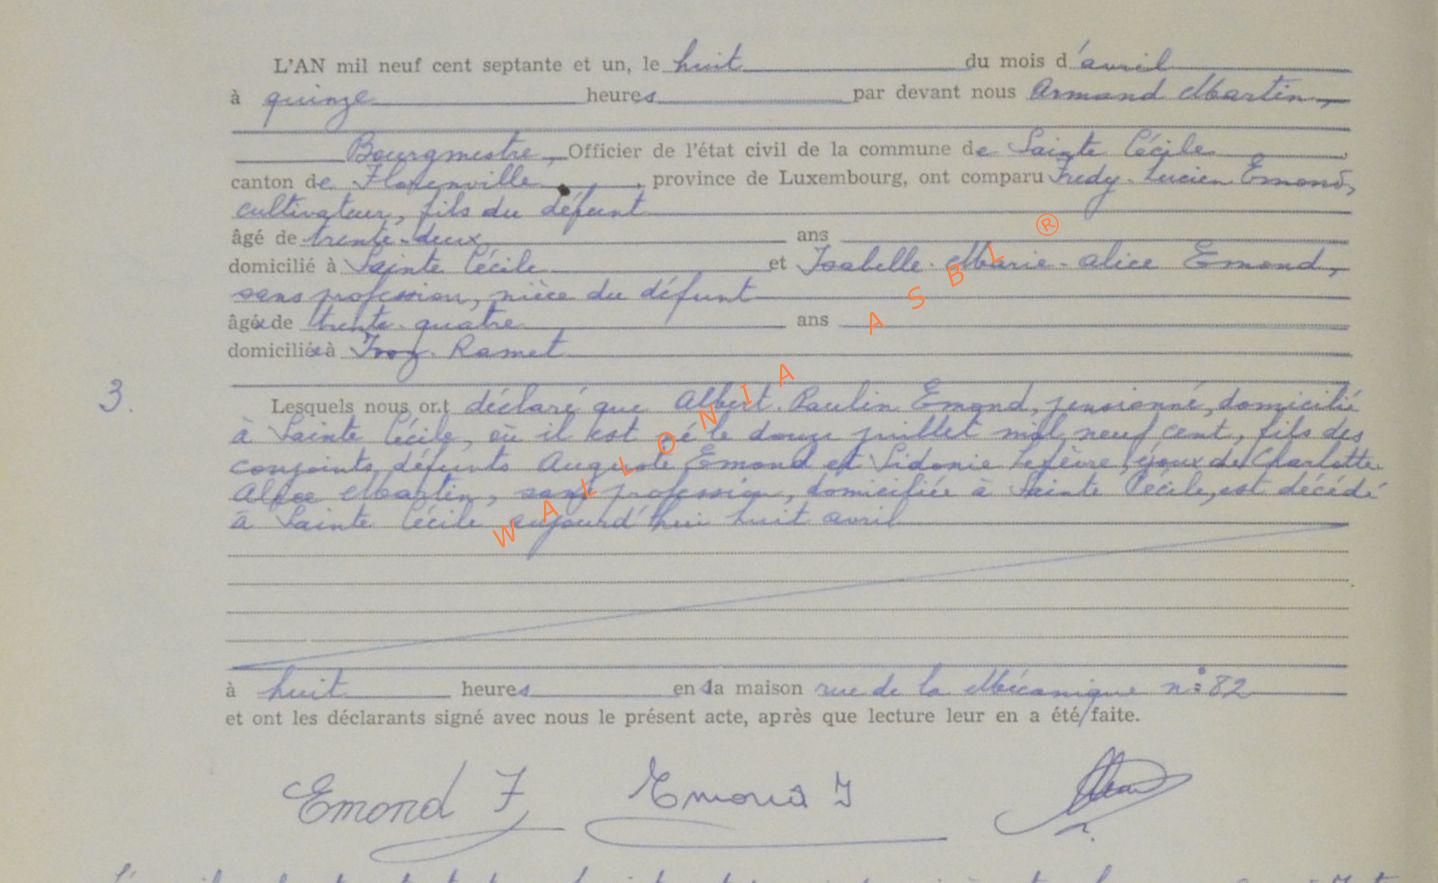 L'AN mil neuf cent septante et un, le huit du mois d'avril
à quinze heures par devant nous Armand Martin,
Bourgmestre, Officier de l'état civil de la commune de Sainte Cécile
canton de Florenville, province de Luxembourg, ont comparu Fredy-Lucien Emond,
cultivateur, fils du défunt
âgé de trente-deux ans
domicilié à Sainte Cécile et Isabelle-Marie-Alice Emond,
sans profession, nièce du défunt
âgée de trente-quatre ans
domiciliée à Ramet
3. Lesquels nous ont déclaré que Albert-Paulin Emond, pensionné, domicilié
à Sainte Cécile, où il est né le douze juillet mil neuf cent, fils des
conjoints, défunts Auguste Emond et Sidonie Lefèvre, époux de Charlotte
Alice Martin, sans profession, domiciliée à Sainte Cécile, est décédé
à Sainte Cécile aujourd'hui huit avril
à huit heures en la maison rue de la Mécanique n° 82
et ont les déclarants signé avec nous le présent acte, après que lecture leur en a été faite.
Emond F Emond I
WALLONIA ASBL ®